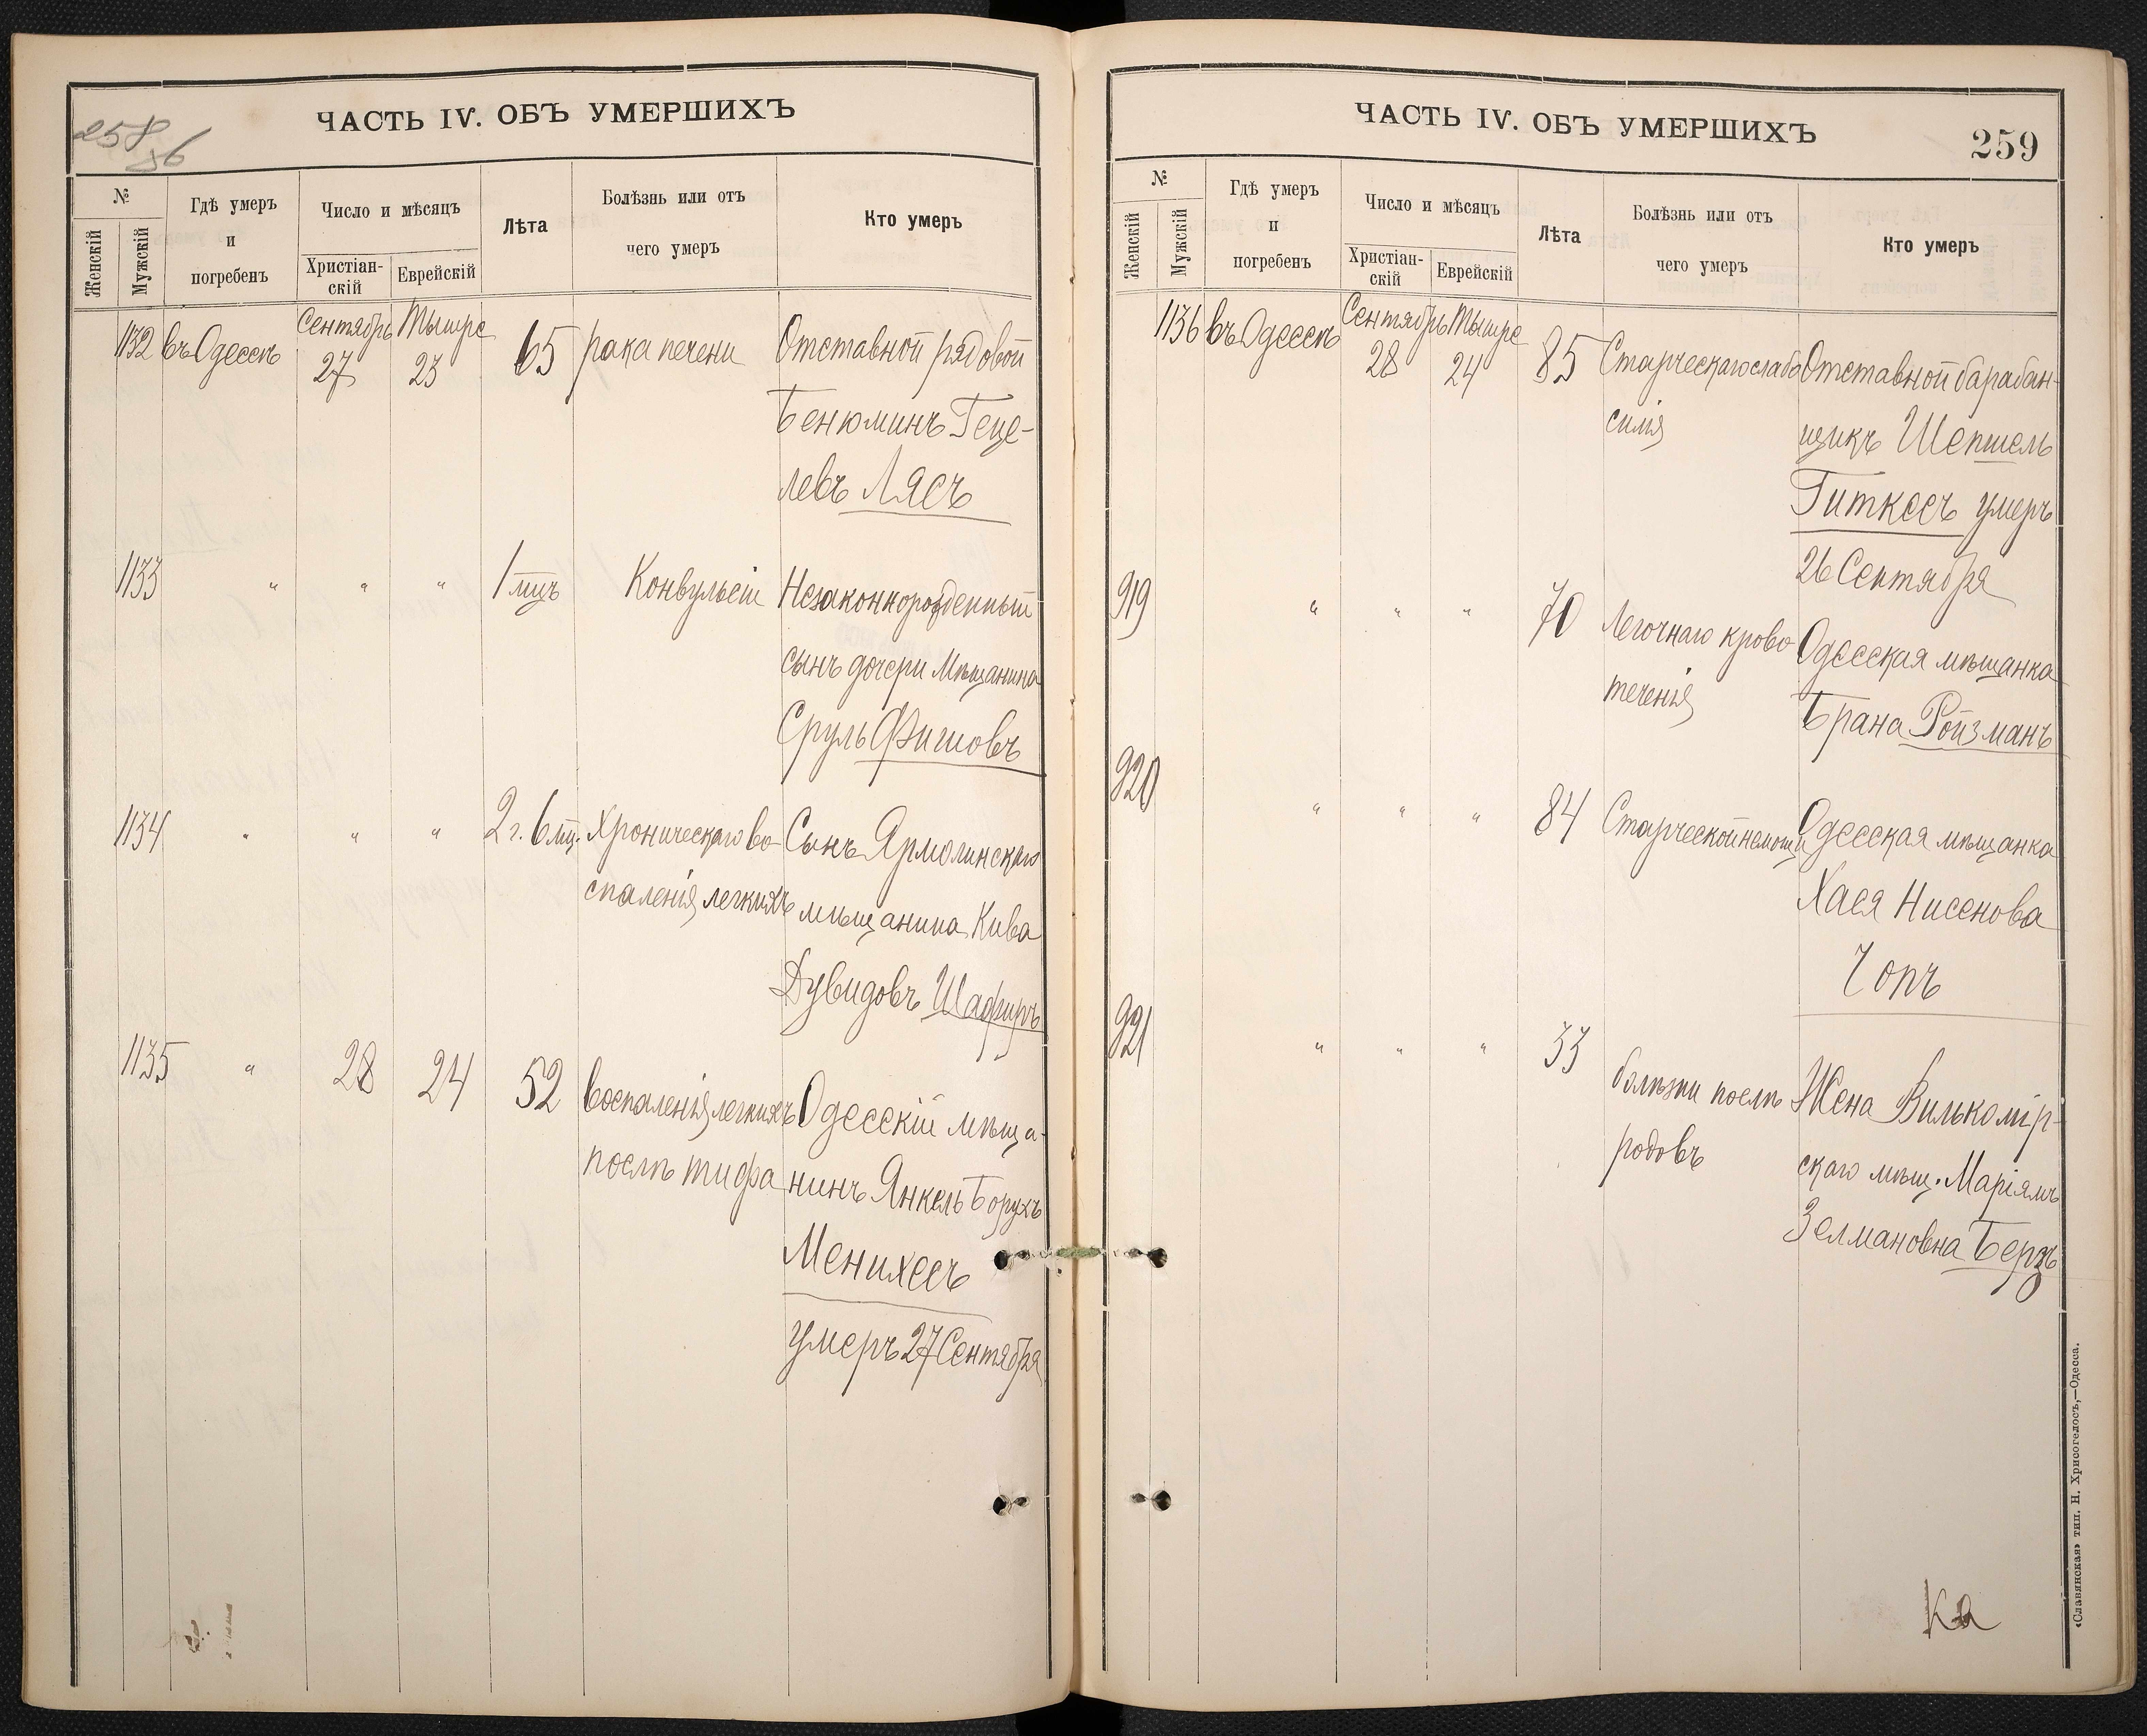 258
56
ЧАСТЬ IV. ОБЪ УМЕРШИХЪ
№
Женскій
Мужскій
Гдѣ умеръ
и
погребенъ
Число и мѣсяцъ
Христіан-
скій
Еврейскій
Лѣта
Болѣзнь или отъ
чего умеръ
Кто умеръ
1132 въ Одессѣ Сентябрь 27 Тышре 23 65 рака печени Отставной рядовой
Бенюминъ Геце-
левъ Лясъ
1133 " " " 1 мцъ Конвульсіи Незаконнорожденный
сынъ дочери мѣщанина
Сруль Фишовъ
1134 " " " 2 г. 6 мц. Хроническаго во- Сынъ Ярмолинскаго
спаленія легкихъ мѣщанина Кива
Дувидовъ Шафиръ
1135 " 28 24 52 Воспаленія легкихъ Одесскій мѣща-
послѣ тифа нинъ Янкель Борухъ
Менихесъ
умеръ 27 Сентября
ЧАСТЬ IV. ОБЪ УМЕРШИХЪ
259
№
Женскій
Мужскій
Гдѣ умеръ
и
погребенъ
Число и мѣсяцъ
Христіан-
скій
Еврейскій
Лѣта
Болѣзнь или отъ
чего умеръ
Кто умеръ
1136 въ Одессѣ Сентябрь 28 Тышре 24 85 Старческаго слабо Отставной барабан-
силія щикъ Шепшель
Гиткесъ умеръ
26 Сентября
919 " " " 70 Легочнаго крово Одесская мѣщанка
теченія Брана Ройзманъ
920 " " " 84 Старческой немощи Одесская мѣщанка
Хася Нисенова
Чопъ
921 " " " 33 болѣзни послѣ Жена Вилькомір-
родовъ скаго мѣщ. Маріямъ
Зелмановна Берзъ
ка
«Славянская» тип. Н. Хрисогелосъ,—Одесса.